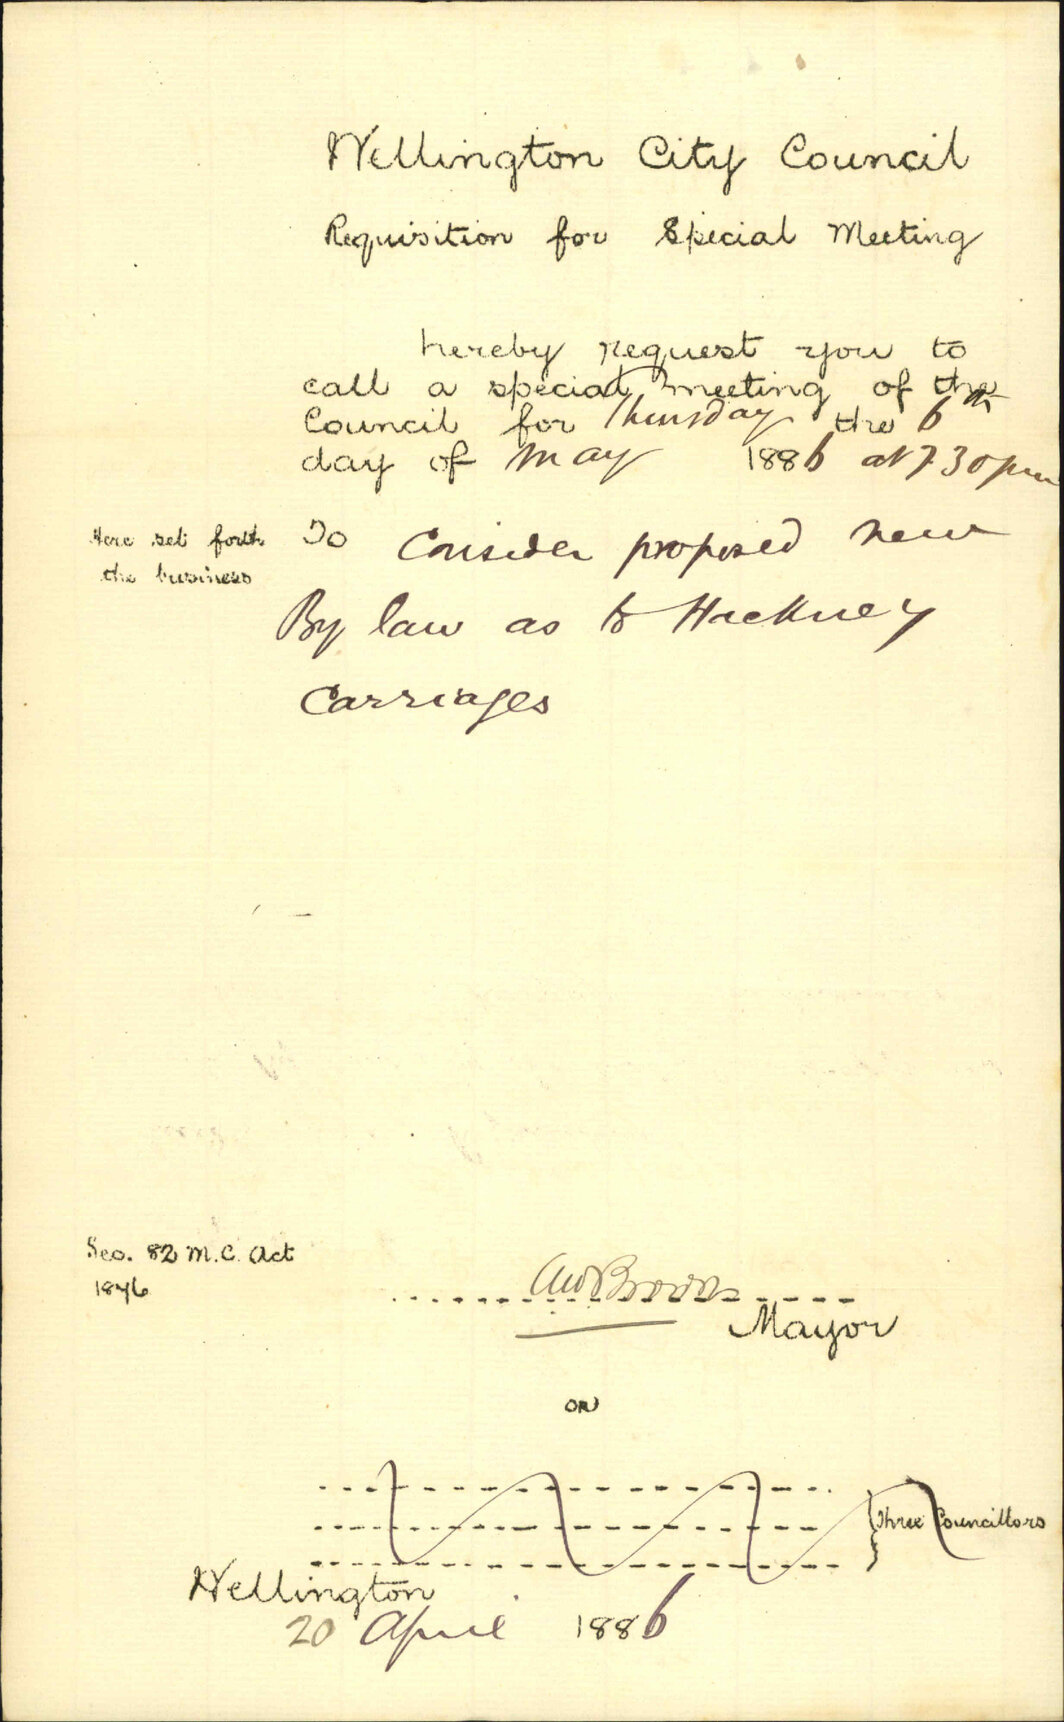 Wellington City Council
Requisition for Special Meeting
hereby request you to
call a special meeting of the
Council for Thursday the 6th
day of May 1886 at 7 30 pm
Here set forth
the business
To Consider proposed new
By law as to Hackney
Carriages
Sec. 82 M.C. Act
1876
Brown
Mayor
OR
Three Councillors
Wellington
20 April 1886